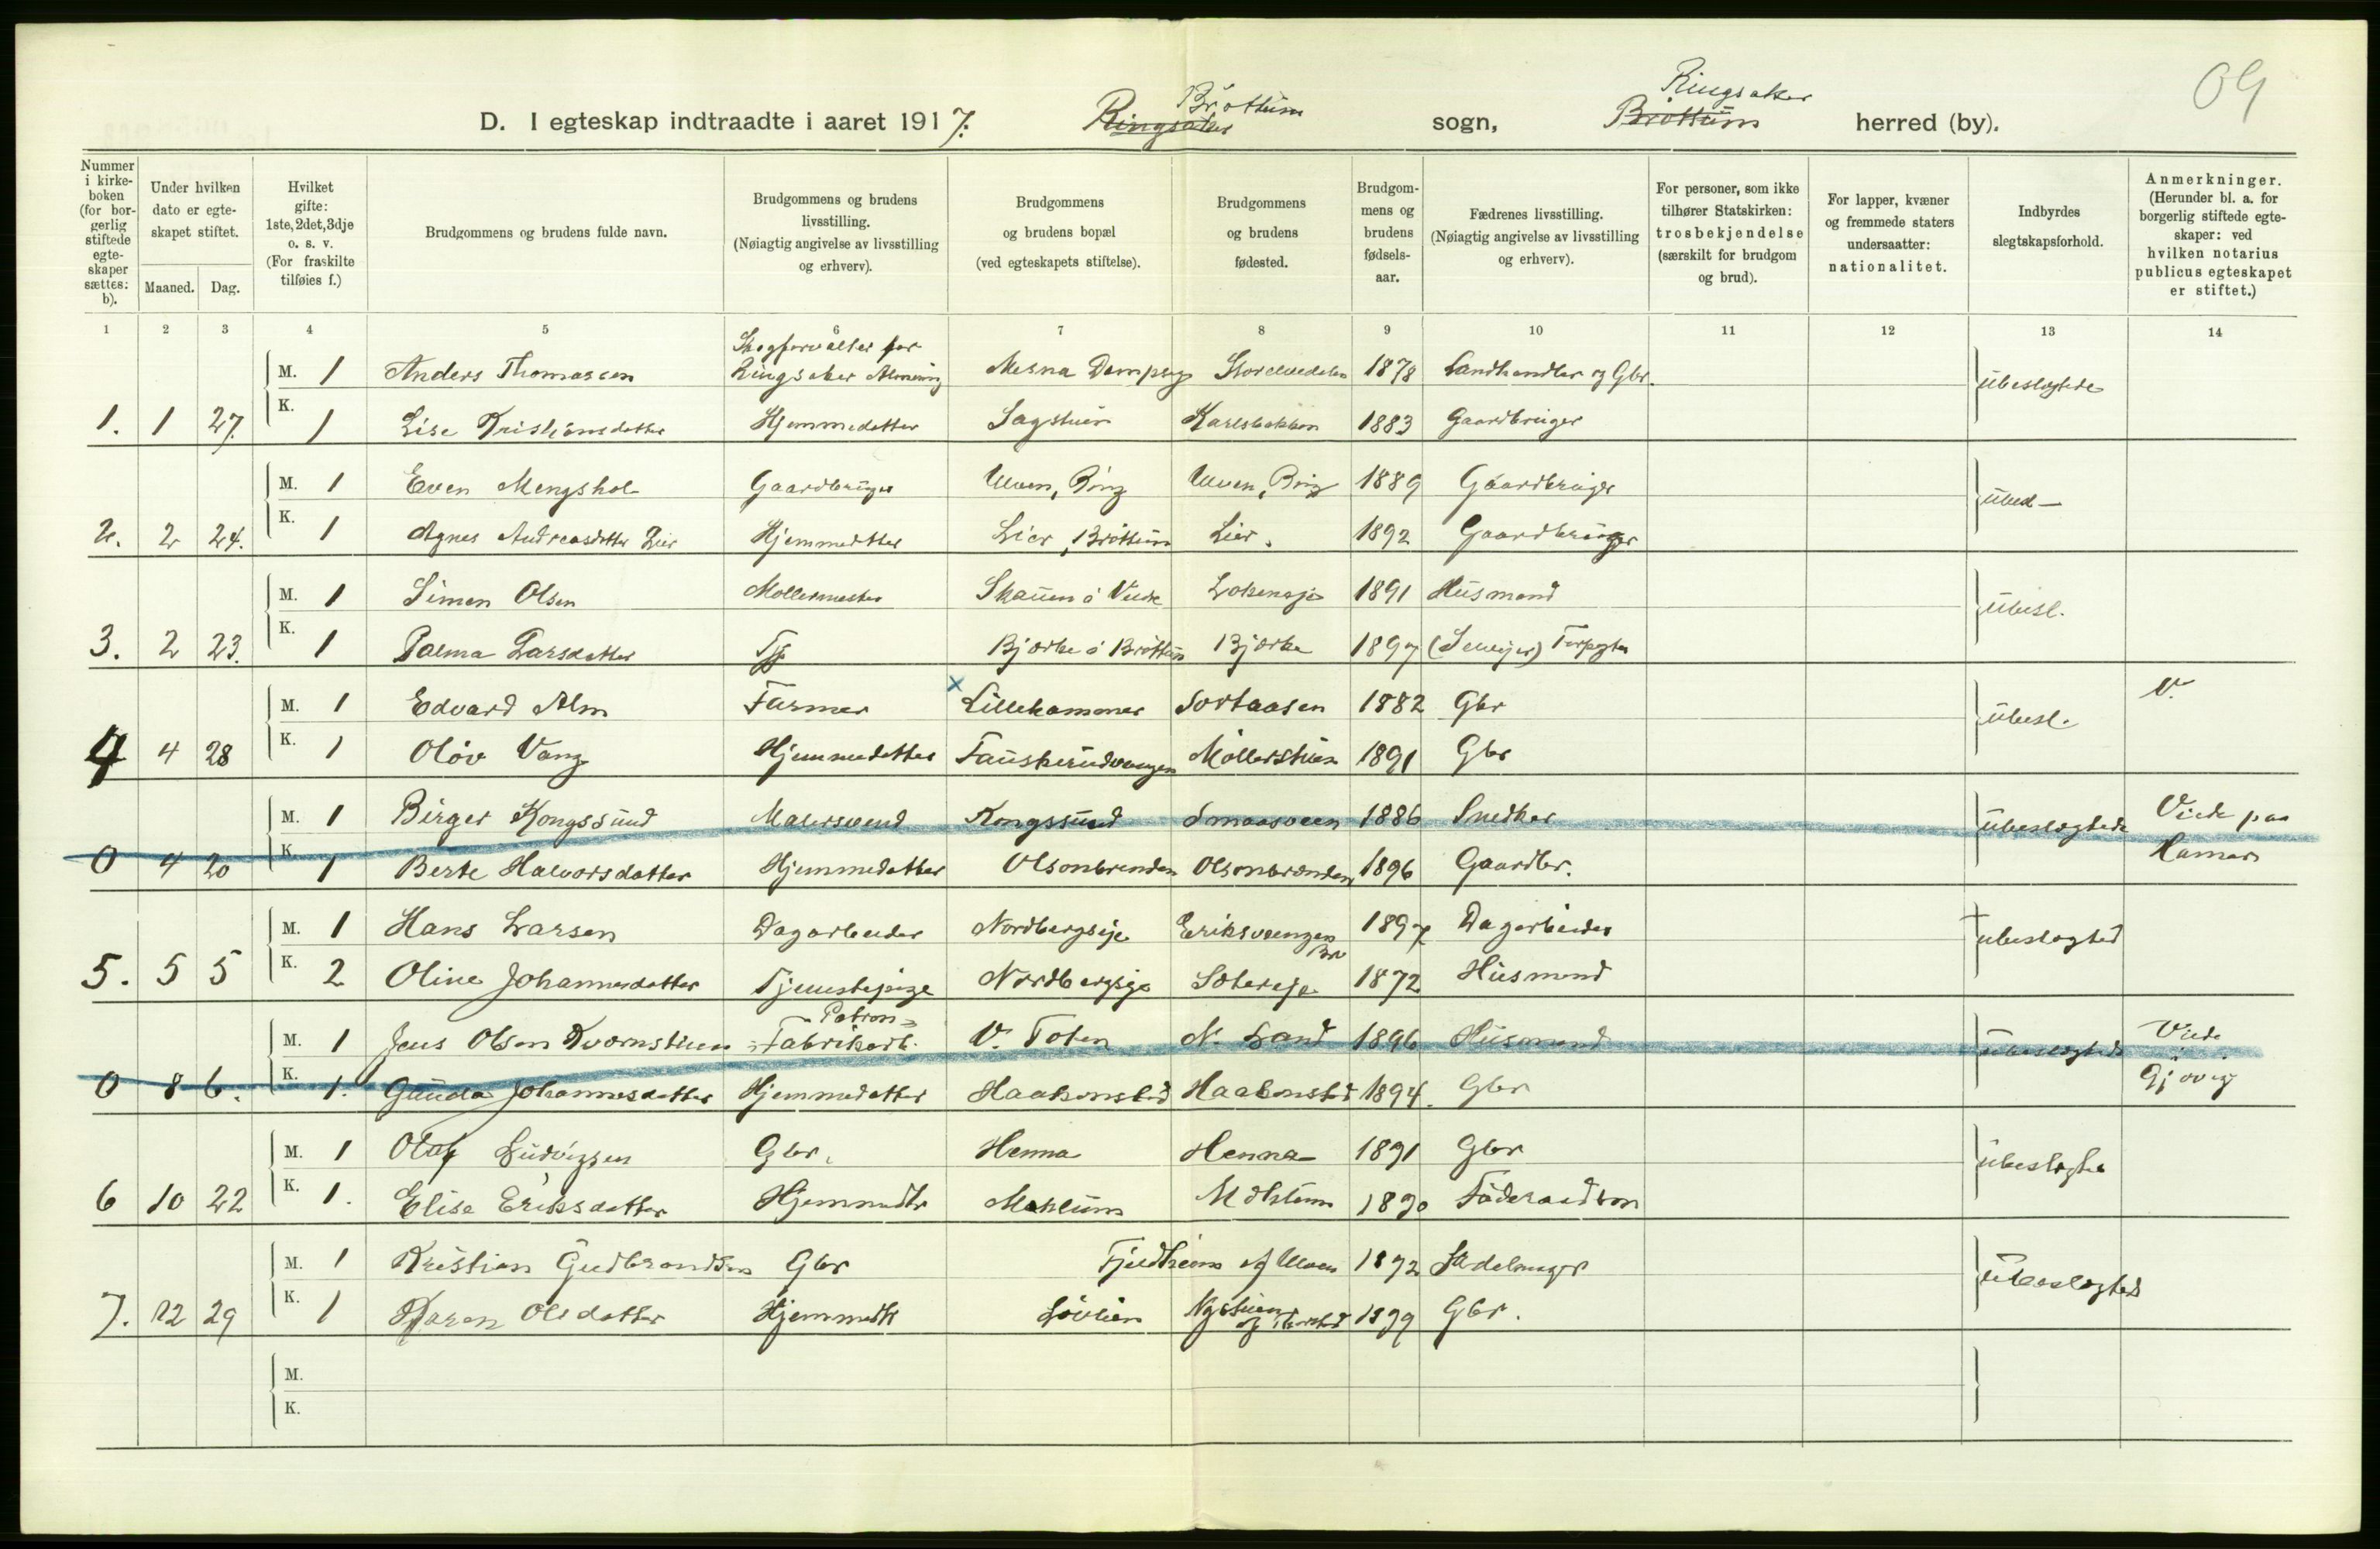 09
D. I egteskap indtraadte i aaret 1917. Ringsaker Brøttum sogn, Brøttum Ringsaker herred (by).
Nummer i kirkeboken (for borgerlig stiftede egteskaper sættes: b).
Under hvilken dato er egteskapet stiftet.
Maaned. Dag.
Hvilket gifte: 1ste, 2det, 3dje o. s. v. (For fraskilte tilføies f.)
Brudgommens og brudens fulde navn.
Brudgommens og brudens livsstilling. (Nøiagtig angivelse av livsstilling og erhverv).
Brudgommens og brudens bopæl (ved egteskapets stiftelse).
Brudgommens og brudens fødested.
Brudgommens og brudens fødselsaar.
Fædrenes livsstilling. (Nøiagtig angivelse av livsstilling og erhverv).
For personer, som ikke tilhører Statskirken: trosbekjendelse (særskilt for brudgom og brud).
For lapper, kvæner og fremmede staters undersaatter: nationalitet.
Indbyrdes slegtskapsforhold.
Anmerkninger. (Herunder bl. a. for borgerlig stiftede egteskaper: ved hvilken notarius publicus egteskapet er stiftet.)
1 2 3 4 5 6 7 8 9 10 11 12 13 14
M. 1 Anders Thomassen Skogforvalter for Ringsaker Almening Mesna Dampsag 1878 Landhandler og Gbr. ubeslegtede
1. 1 27. K. 1 Lise Kristiansdatter Hjemmedatter Sagstuen Karlsbakken 1883 Gaardbruger
M. 1 Even Mengshol Gaardbruger Ulven, Ring Ulven, Ring 1889 Gaardbruger
2. 2 24. K. 1 Agnes Andreasdatter Lier Hjemmedatter Lier, Brøttum Lier. 1892 Gaardbruger
M. 1 Simen Olsen Møllermester 1891 Husmand ubesl.
3. 2 23. K. 1 Palma Larsdatter Tj. Bjørke i Brøttum Bjørke 1897 (Selveier)
M. 1 Edvard Alm Farmer x Lillehammer Sortaasen 1882 Gbr ubesl. V.
4 4 28 K. 1 Oløv Vang Hjemmedatter Fauskerudvangen Møllerstuen 1891 Gbr
M. 1 Birger Kongssund Malersvend Kongssund Smaasveen 1886 Snedker ubeslegtede Viede paa
0 4 20 K. 1 Berte Halvorsdatter Hjemmedatter Olsonbrenden Olsonbrenden 1896 Gaardbr. Hamar
M. 1 Hans Larsen Dagarbeider Nordbergseje Eriksvangen 1897 Dagarbeider ubeslegted
5. 5 5 K. 2 Oline Johannesdatter Tjenestepige Nordbergseje 1872 Husmand
M. 1 Jens Olsen Kvernstuen Patron= =Fabrikarb. V. Toten N. Land 1896 Husmand ubeslegtede Viede
0 8 6. K. 1. Gunda Johannesdatter Hjemmedatter Haakonsled Haakonsled 1894. Gbr i Gjøvig
M. 1 Olaf Ludvigsen Gbr. Henna Henna 1891 Gbr ubeslegtede
6 10 22 K. 1. Elise Eriksdatter Hjemmedtr Mæhlum Mæhlum 1890 Føderaadson
M. 1 Kristian Gudbrandsen Gbr Fjeldheim af Ulven 1892 Sadelmager ubeslegted
7. 12 29 K. 1 Karen Olsdatter Hjemmedtr Løvlien Nystuen 1899 Gbr.
M.
K.